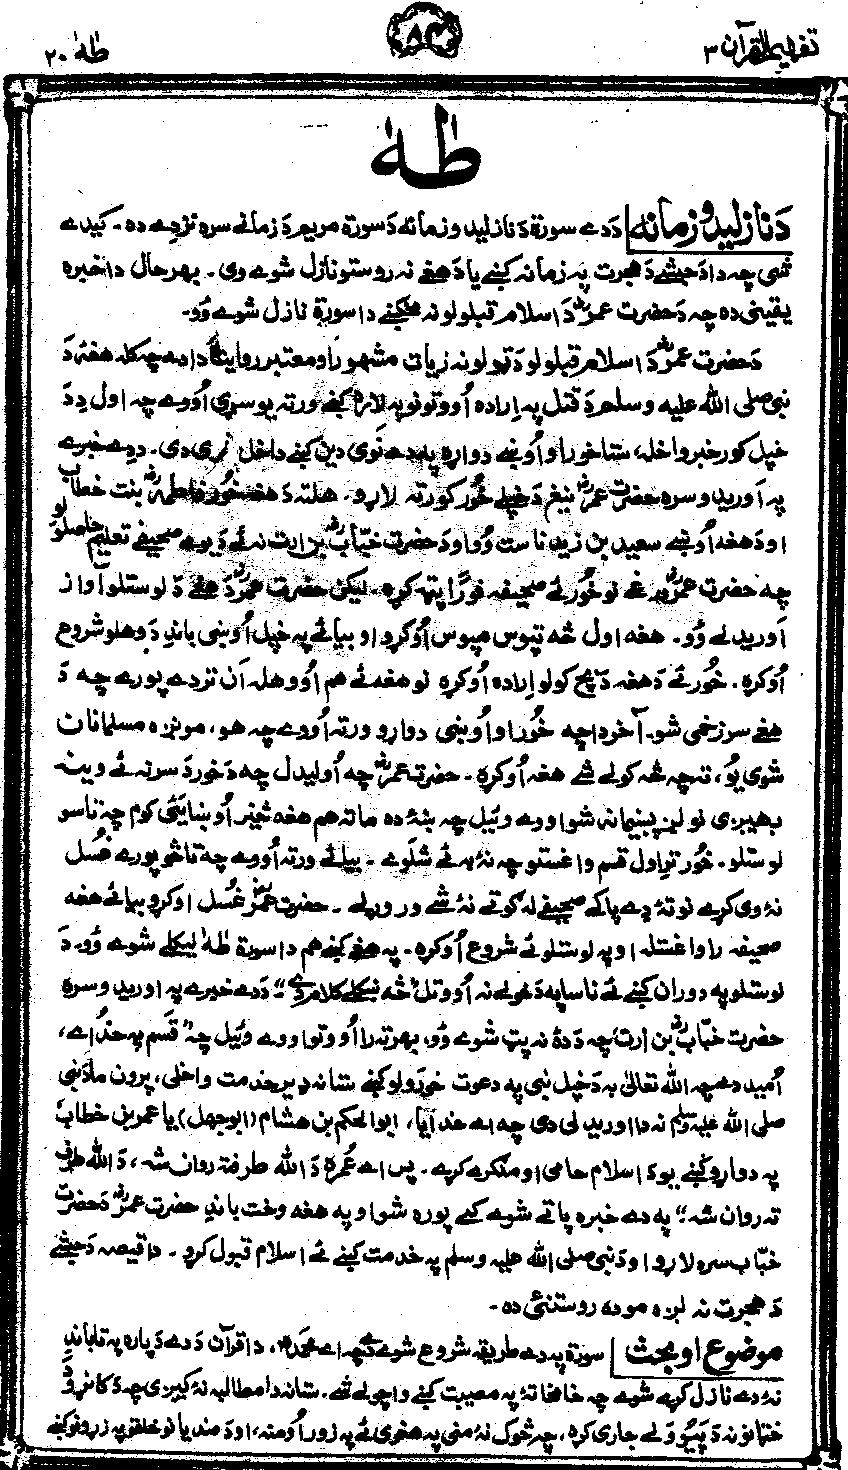 تفهيم القرآن ٣
٨٢
طٰهٰ ٢٠
طٰهٰ
دَ نازليدو زمانه
دَدے سورة دَ نازليدو زمانه دَ سورة مريم دَ زمانے سره نژدے ده۔ کيدے
شی چه دا دَ حبشے دَ هجرت په زمانه کښے يا دَ هغے نه روستو نازل شوے وی۔ بهرحال دا خبره
يقينی ده چه دَ حضرت عمرؓ دَ اسلام قبلولو نه مخکښے دا سورة نازل شوے وُو۔
دَ حضرت عمرؓ دَ اسلام قبلولو دَ ټولو نه زيات مشهور او معتبر روايت دا دے چه کله هغه دَ
نبی صلی الله عليه وسلم دَ قتل په اراده اُووتو نو په لاره کښے ورته يو سړی اُووے چه اول دِ دَ
خپل کور خبر واخله، ستا خور او اُوښے دواړه په دے نوی دين کښے داخل شوی دی۔ دے خبرے
په اَوريدو سره حضرت عمرؓ نيغ دَ خپلے خور کورته لاړو۔ هلته دَ هغه خور فاطمهؓ بنت خطاب
او دَ هغه اُوښے سعيد بن زيد ناست وُو او دَ حضرت خبّابؓ بن ارت نه ئے دَ يوے صحيفے تعليم حاصلوَلو
چه حضرت عمرؓ ورغے نو خور ئے صحيفه فورًا پټه کړه۔ ليکن حضرت عمرؓ دَ هغے دَ لوستلو آواز
اَوريدلے وُو۔ هغه اول څه تپوس مپوس اُوکړو او بيائے په خپل اُوښی باندِ دَ وهلو شروع
اُوکړه۔ خور ئے دَ هغه دَ بچ کولو اراده اُوکړه نو هغه ئے هم اُووهله آن تر دے پورے چه دَ
هغے سر زخمی شو۔ آخر دا چه خور او اُوښی دواړو ورته اُووے چه هو، مونږه مسلمانان
شوی يُو، ته چه څه کولے شے هغه اُوکړه۔ حضرت عمرؓ چه اُوليدل چه دَ خور دَ سر نه ئے وينه
بهيږی نو لږ پښيمانه شو او وے وئيل چه ښه ده ما ته هم هغه څيز اُوښايئی کوم چه تاسو
لوستلو۔ خور تر اول قسم واغستو چه نهٔ به ئے شلوے۔ بيائے ورته اُووے چه تا څو پورے غُسل
نهٔ وی کړے نو تهٔ دے پاکے صحيفے له ګوتے نهٔ شے وروړلے۔ حضرت عمرؓ غُسل اوکړو بيائے هغه
صحيفه راواغستله او په لوستلو ئے شروع اُوکړه۔ په هغے کښے هم دا سورة طٰهٰ ليکلے شوے وُو۔ دَ
لوستلو په دوران کښے ئے ناساپه دَ خولے نه اُووتل "څه ښکلے کلام دے"۔ دَدے خبرے په اوريدو سره
حضرت خبّابؓ بن ارت چه دَ دهٔ نه پټ شوے وُو، بهر ته را اُووتو او وے وئيل چه "قسم په خدائے،
اُميد دے چه الله تعالیٰ به دَ خپل نبی په دعوت خورَولو کښے ستا نه ډير خدمت واخلی، پرون ما دَ نبی
صلی الله عليه وسلم نه دا اوريدلی دی چه اے خدايا، ابوالحکم بن هشام (ابوجهل) يا عمر بن خطاب
په دواړو کښے يو دَ اسلام حامی او ملګرے کړے۔ پس اے عمره دَ الله طرفته روان شه، دَ الله طرف
ته روان شه" په دے خبره پاتے شوے کمے پوره شو او په هغه وخت باندِ حضرت عمرؓ دَ حضرت
خبّاب سره لاړو او دَ نبی صلی الله عليه وسلم په خدمت کښے ئے اسلام قبول کړو۔ دا قيصه دَ حبشے
دَ هجرت نه لږه موده روستنئی ده۔
موضوع او بحث
سورة په دے طريقه شروع شوے دے چه اے محمدﷺ، دا قرآن دَدے دَپاره په تا باندِ
نهٔ دے نازل کړے شوے چه خامخا تهٔ په مصيبت کښے واچولے شے۔ ستا نه دا مطالبه نهٔ کيږی چه دَ کاڼو دَ
ختو نه دَ پيو ولے جاری کړه، چه څوک نهٔ منی په هغوی ئے په زور اُومنه، او دَ ضديانو خلقو په زړونو کښے